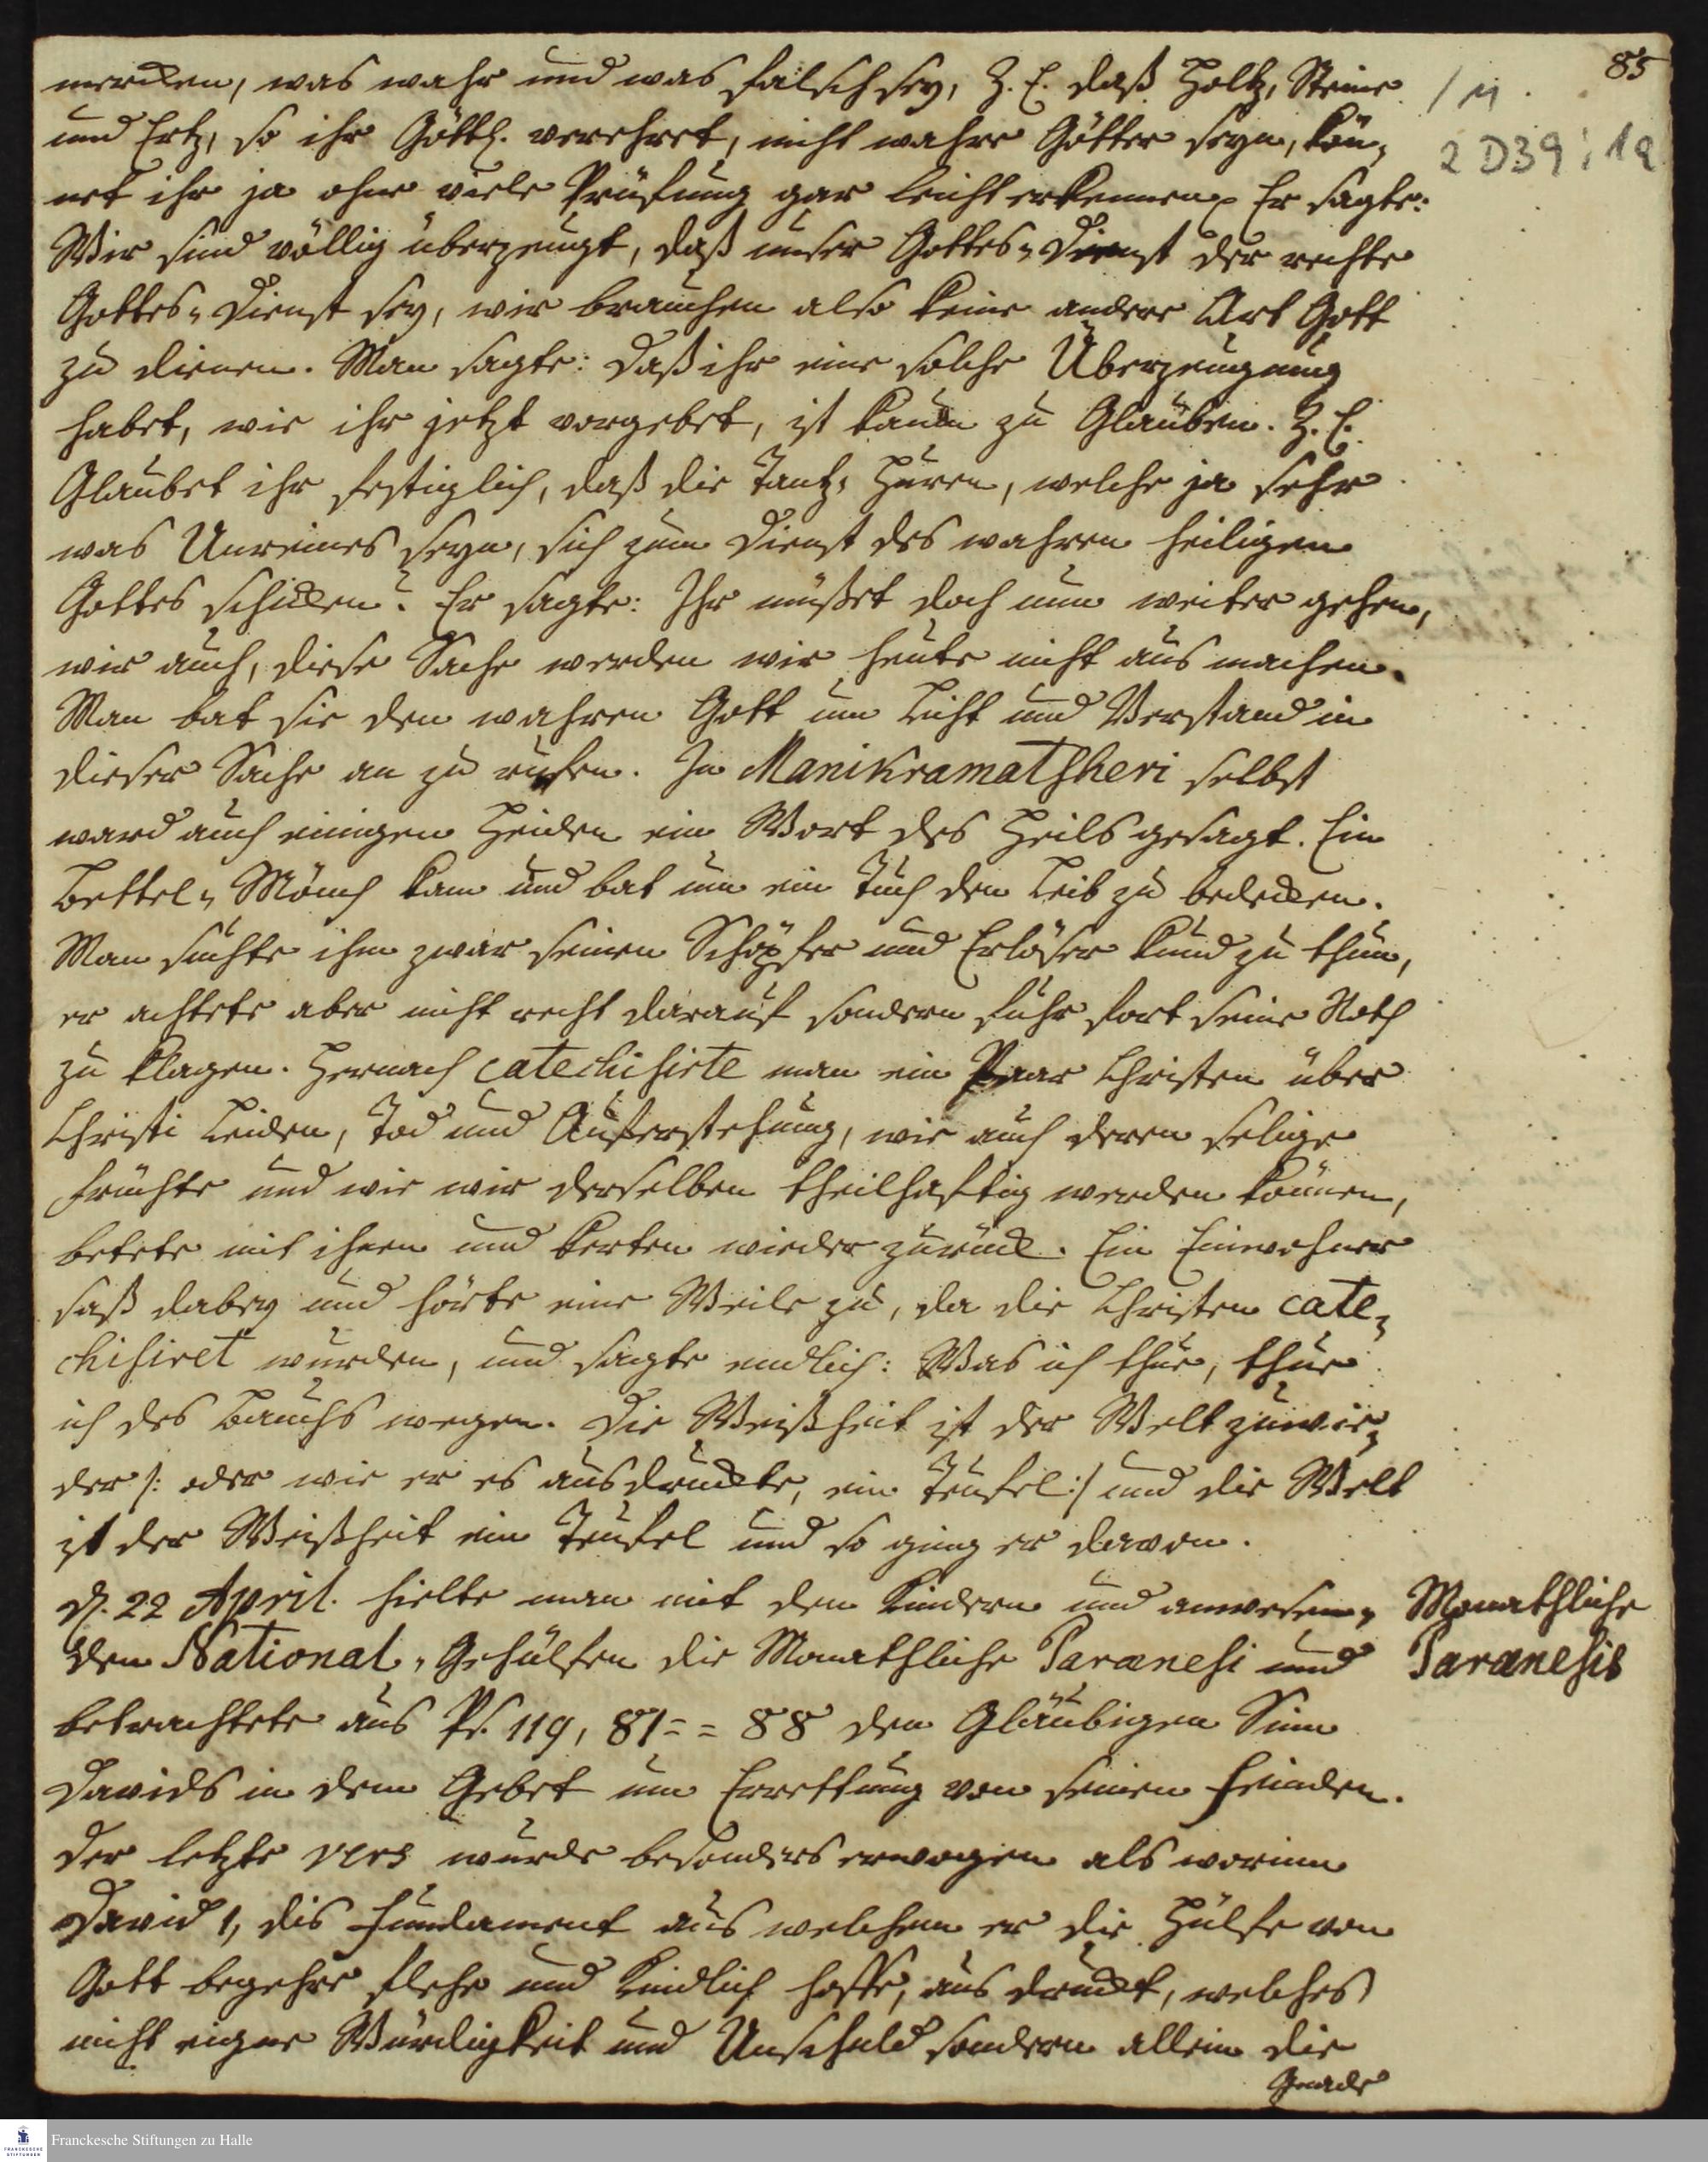 85
/M.
2 D39 : 1a
mercken, was wahr und was falsch sey, Z. E. daß Holtz, Steine
und Ertz, so ihr Göttl. verehret, nicht wahre Götter seyn, kön-
net ihr ja ohne viele Prüfung gar leicht erkennen. Er sagte:
Wir sind völlig überzeugt, daß unser Gottes-Dienst der rechte
Gottes-Dienst sey, wir brauchen also keine andere Art Gott
zu dienen. Man sagte: daß ihr eine solche Überzeugung
habet, wie ihr jetzt vorgebet, ist kaum zu Glauben. Z. E.
Glaubet ihr festiglich, daß die Tantz-Huren, welche ja sehr
was Unreines seyn, sich zum Dienst des wahren heiligen
Gottes schicken? Er sagte: Ihr müßet doch nun weiter gehen,
wir auch, diese Sache werden wir heute nicht aus machen.
Man bat sie den wahren Gott um Licht und Verstand in
dieser Sache an zu rufen. In Manikramatsheri selbst
ward auch einigen Heiden ein Wort des Heils gesagt. Ein
Bettel-Mönch kam und bat um ein Tuch den Leib zu bedecken.
Man suchte ihm zwar seinen Schöpfer und Erlöser kund zu thun,
er achtete aber nicht recht darauf sondern fuhr fort seine Noth
zu klagen. Hernach catechisirte man ein Paar Christen über
Christi Leiden, Tod und Auferstehung, wie auch deren selige
Früchte und wie wir derselben theilhaftig werden können,
betete mit ihnen und kerten wieder zurück. Ein Einwohner
saß dabey und hörte eine Weile zu, da die Christen cate-
chisiret wurden, und sagte endlich: Was ich thue, thue
ich des Bauchs wegen. Die Weißheit ist der Welt zuwie-
der /: oder wie er es ausdruckte, ein Teufel :/ und die Welt
ist der Weißheit ein Teufel und so ging er davon.
d. 22 April. hielte man mit den Kindern und anwesen-
den National-Gehülfen die Monathliche Paranesi und
Monathliche
Paranesis
betrachtete aus Ps. 119, 81 = = 88 den Gläubigen Sinn
Davids in dem Gebet um Errettung von seinen Feinden.
Der letzte vers wurde besonders erwogen als worinn
David 1, dis Fundament aus welchem er die Hülfe von
Gott begehre flehe und Kindlich hoffe, aus druckt, welches
nicht eigne Würdigkeit und Unschuld sondern allein die
Gnade
Franckesche Stiftungen zu Halle